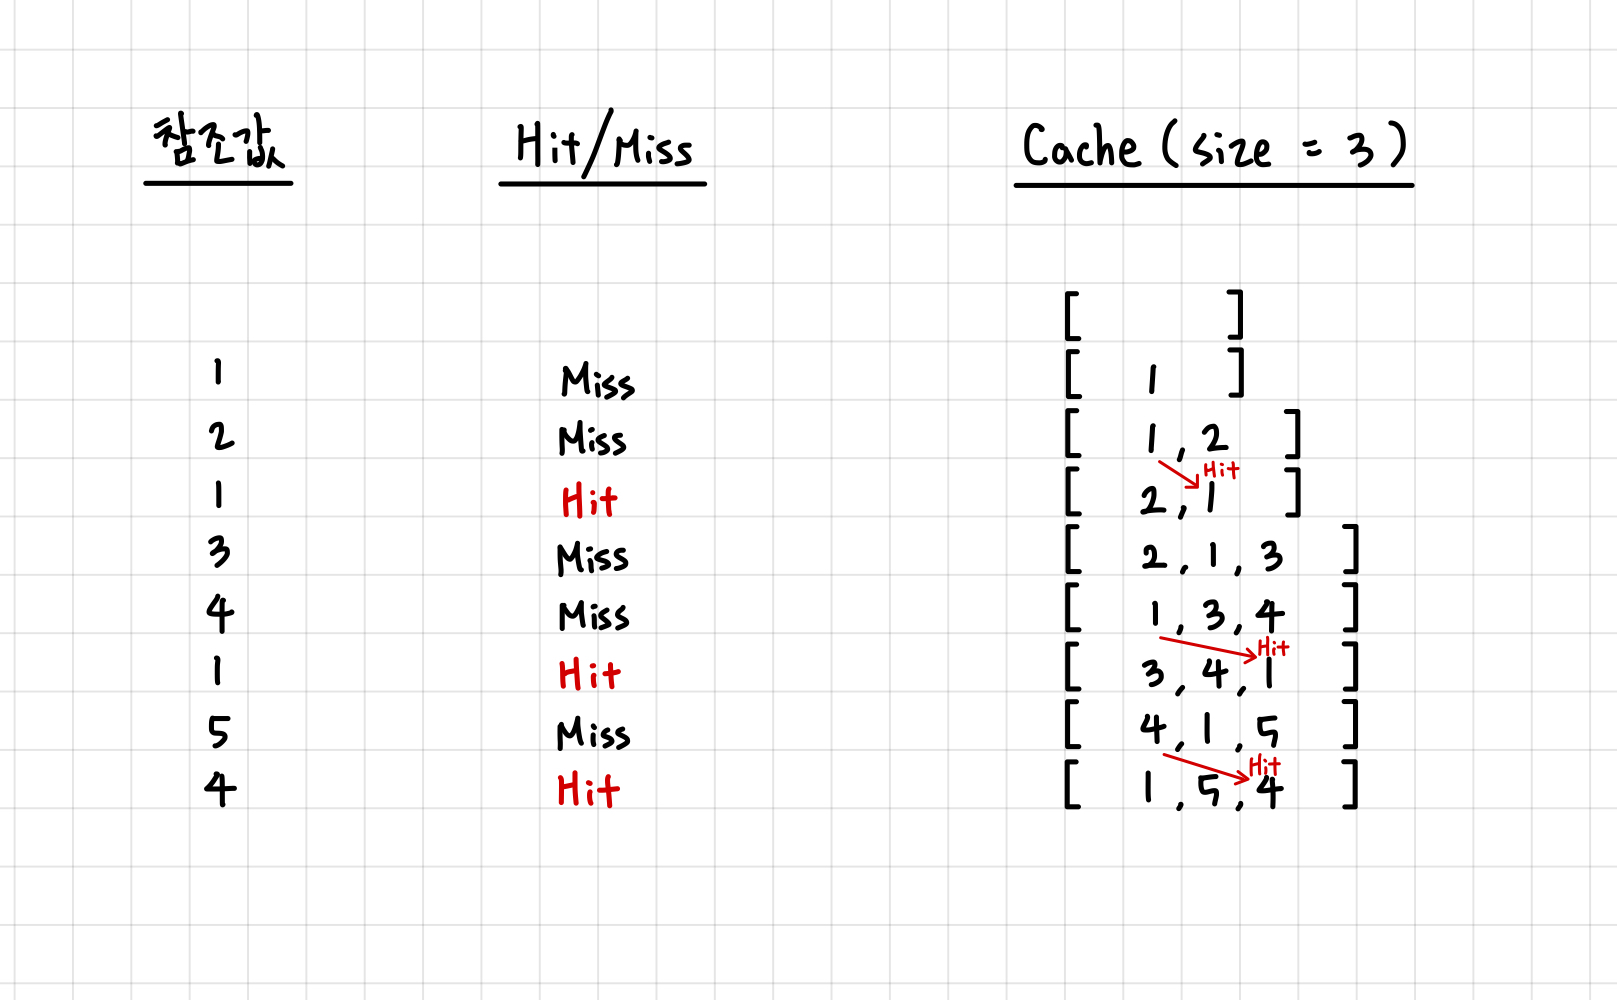 참조값 Hit/Miss Cache (size = 3)
[ ]
1 Miss [ 1 ]
2 Miss [ 1, 2 ]
Hit
1 Hit [ 2, 1 ]
3 Miss [ 2, 1, 3 ]
4 Miss [ 1, 3, 4 ]
Hit
1 Hit [ 3, 4, 1 ]
5 Miss [ 4, 1, 5 ]
Hit
4 Hit [ 1, 5, 4 ]